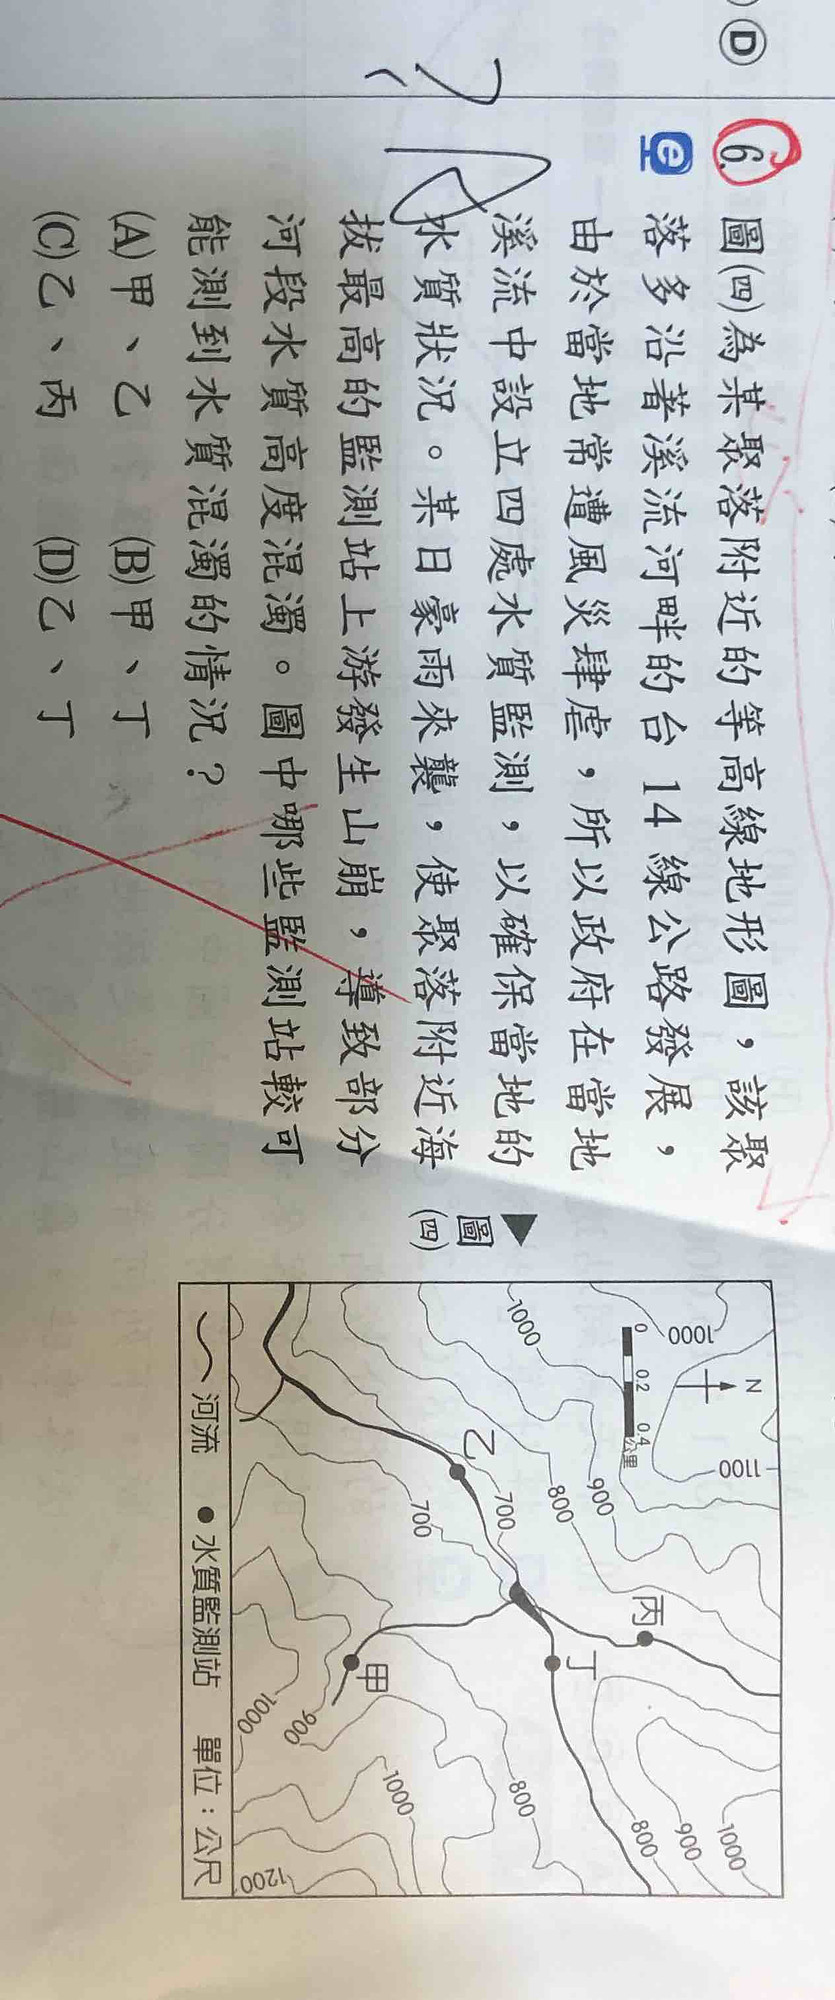 D
6.
圖(四)為某聚落附近的等高線地形圖，該聚
落多沿著溪流河畔的台 14 線公路發展，
由於當地常遭風災肆虐，所以政府在當地
溪流中設立四處水質監測，以確保當地的
水質狀況。某日豪雨來襲，使聚落附近海
拔最高的監測站上游發生山崩，導致部分
河段水質高度混濁。圖中哪些監測站較可
能測到水質混濁的情況？
(A)甲、乙 (B)甲、丁
(C)乙、丙 (D)乙、丁
▲圖(四)
N
0 0.2 0.4
公里
1000
1100
1000
900
800
700
700
乙
丙
丁
甲
800
900
1000
800
1000
900
1000
1200
河流 ●水質監測站 單位：公尺